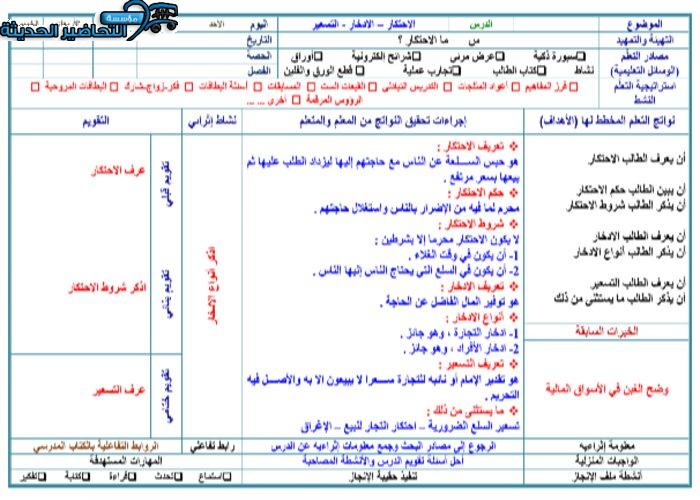 مؤسسة
التحاضير الحديثة
الموضوع
الاحتكار – الادخار - التسعير
الدرس
اليوم
الأحد
التهيئة والتمهيد
س ما الاحتكار ؟
التاريخ
مصادر التعلم
(الوسائل التعليمية)
سبورة ذكية عرض مرئي شرائح الكترونية أوراق
نشاط كتاب الطالب تجارب عملية قطع الورق والفلين
الحصة
الفصل
استراتيجية التعلم
النشط
فرز المفاهيم أعواد المثلجات التدريس التبادلي القبعات الست المسابقات أسئلة البطاقات فكر-زواج-شارك البطاقات المروحية
الرؤوس المرقمة أخرى ... ...
نواتج التعلم المخطط لها (الأهداف)
إجراءات تحقيق النواتج من المعلم والمتعلم
نشاط إثرائي
التقويم
أن يعرف الطالب الاحتكار
أن يبين الطالب حكم الاحتكار
أن يذكر الطالب شروط الاحتكار
أن يعرف الطالب الادخار
أن يذكر الطالب أنواع الادخار
أن يعرف الطالب التسعير
أن يذكر الطالب ما يستثنى من ذلك
الخبرات السابقة
وضح الغبن في الأسواق المالية
❖ تعريف الاحتكار :
هو حبس السلعة عن الناس مع حاجتهم إليها ليزداد الطلب عليها ثم
بيعها بسعر مرتفع .
❖ حكم الاحتكار :
محرم لما فيه من الإضرار بالناس واستغلال حاجتهم .
❖ شروط الاحتكار :
لا يكون الاحتكار محرما إلا بشرطين :
1- أن يكون في وقت الغلاء .
2- أن يكون في السلع التي يحتاج الناس إليها الناس .
❖ تعريف الادخار :
هو توفير المال الفاضل عن الحاجة .
❖ أنواع الادخار :
1- ادخار التجارة ، وهو جائز .
2- ادخار الأفراد ، وهو جائز .
❖ تعريف التسعير :
هو تقدير الإمام أو نائبه للتجارة سعرا لا يبيعون الا به والأصل فيه
التحريم .
❖ ما يستثنى من ذلك :
تسعير السلع الضرورية – احتكار التجار للبيع – الإغراق
اذكر أنواع الادخار
تقويم قبلي
عرف الاحتكار
تقويم بنائي
اذكر شروط الاحتكار
تقويم ختامي
عرف التسعير
معلومة إثرائية
الرجوع إلى مصادر البحث وجمع معلومات إثرائية عن الدرس
رابط تفاعلي
الروابط التفاعلية بالكتاب المدرسي
الواجبات المنزلية
أحل أسئلة تقويم الدرس والأنشطة المصاحبة
المهارات المستهدفة
أنشطة ملف الإنجاز
تنفيذ حقيبة الإنجاز
استماع تحدث قراءة كتابة تفكير